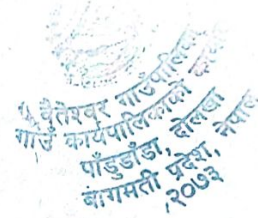 वैतेश्वर गाउँपालिका
गाउँ कार्यपालिकाको
पाँडुडाँडा, दोलखा
बागमती प्रदेश, नेपाल
२०७३